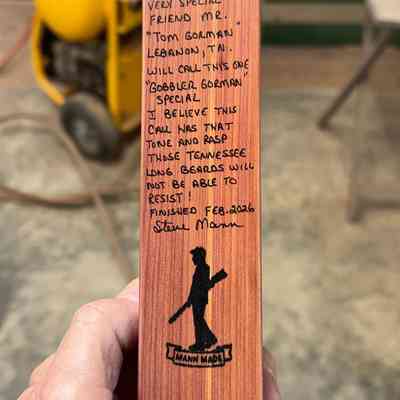 VERY SPECIAL
FRIEND MR.
"TOM GORMAN"
LEBANON, TN.
WILL CALL THIS ONE
"GOBBLER GORMAN"
SPECIAL
I BELIEVE THIS
CALL HAS THAT
TONE AND RASP
THOSE TENNESSEE
LONG BEARDS WILL
NOT BE ABLE TO
RESIST!
FINISHED FEB. 2026
Steve Mann
MANN MADE